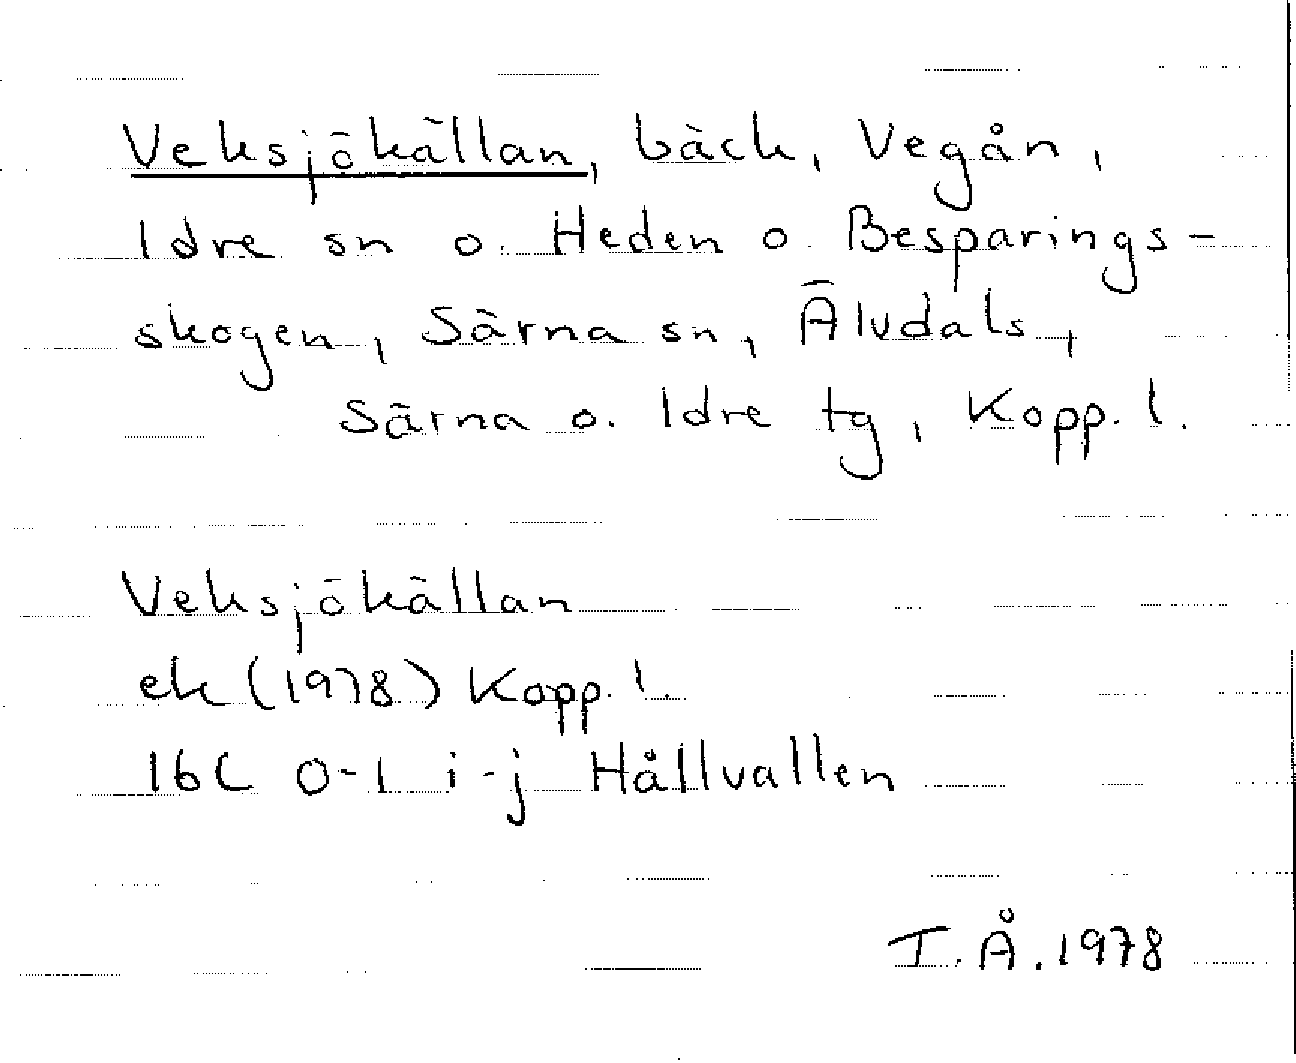 Veksjökällan, bäck, Vegån,
Idre sn o. Heden o. Besparings-
skogen, Särna sn, Älvdals,
Särna o. Idre tg, Kopp. l.
Veksjökällan
ek (1978) Kopp. l.
16C 0-1 i-j Hållvallen
I. Å. 1978